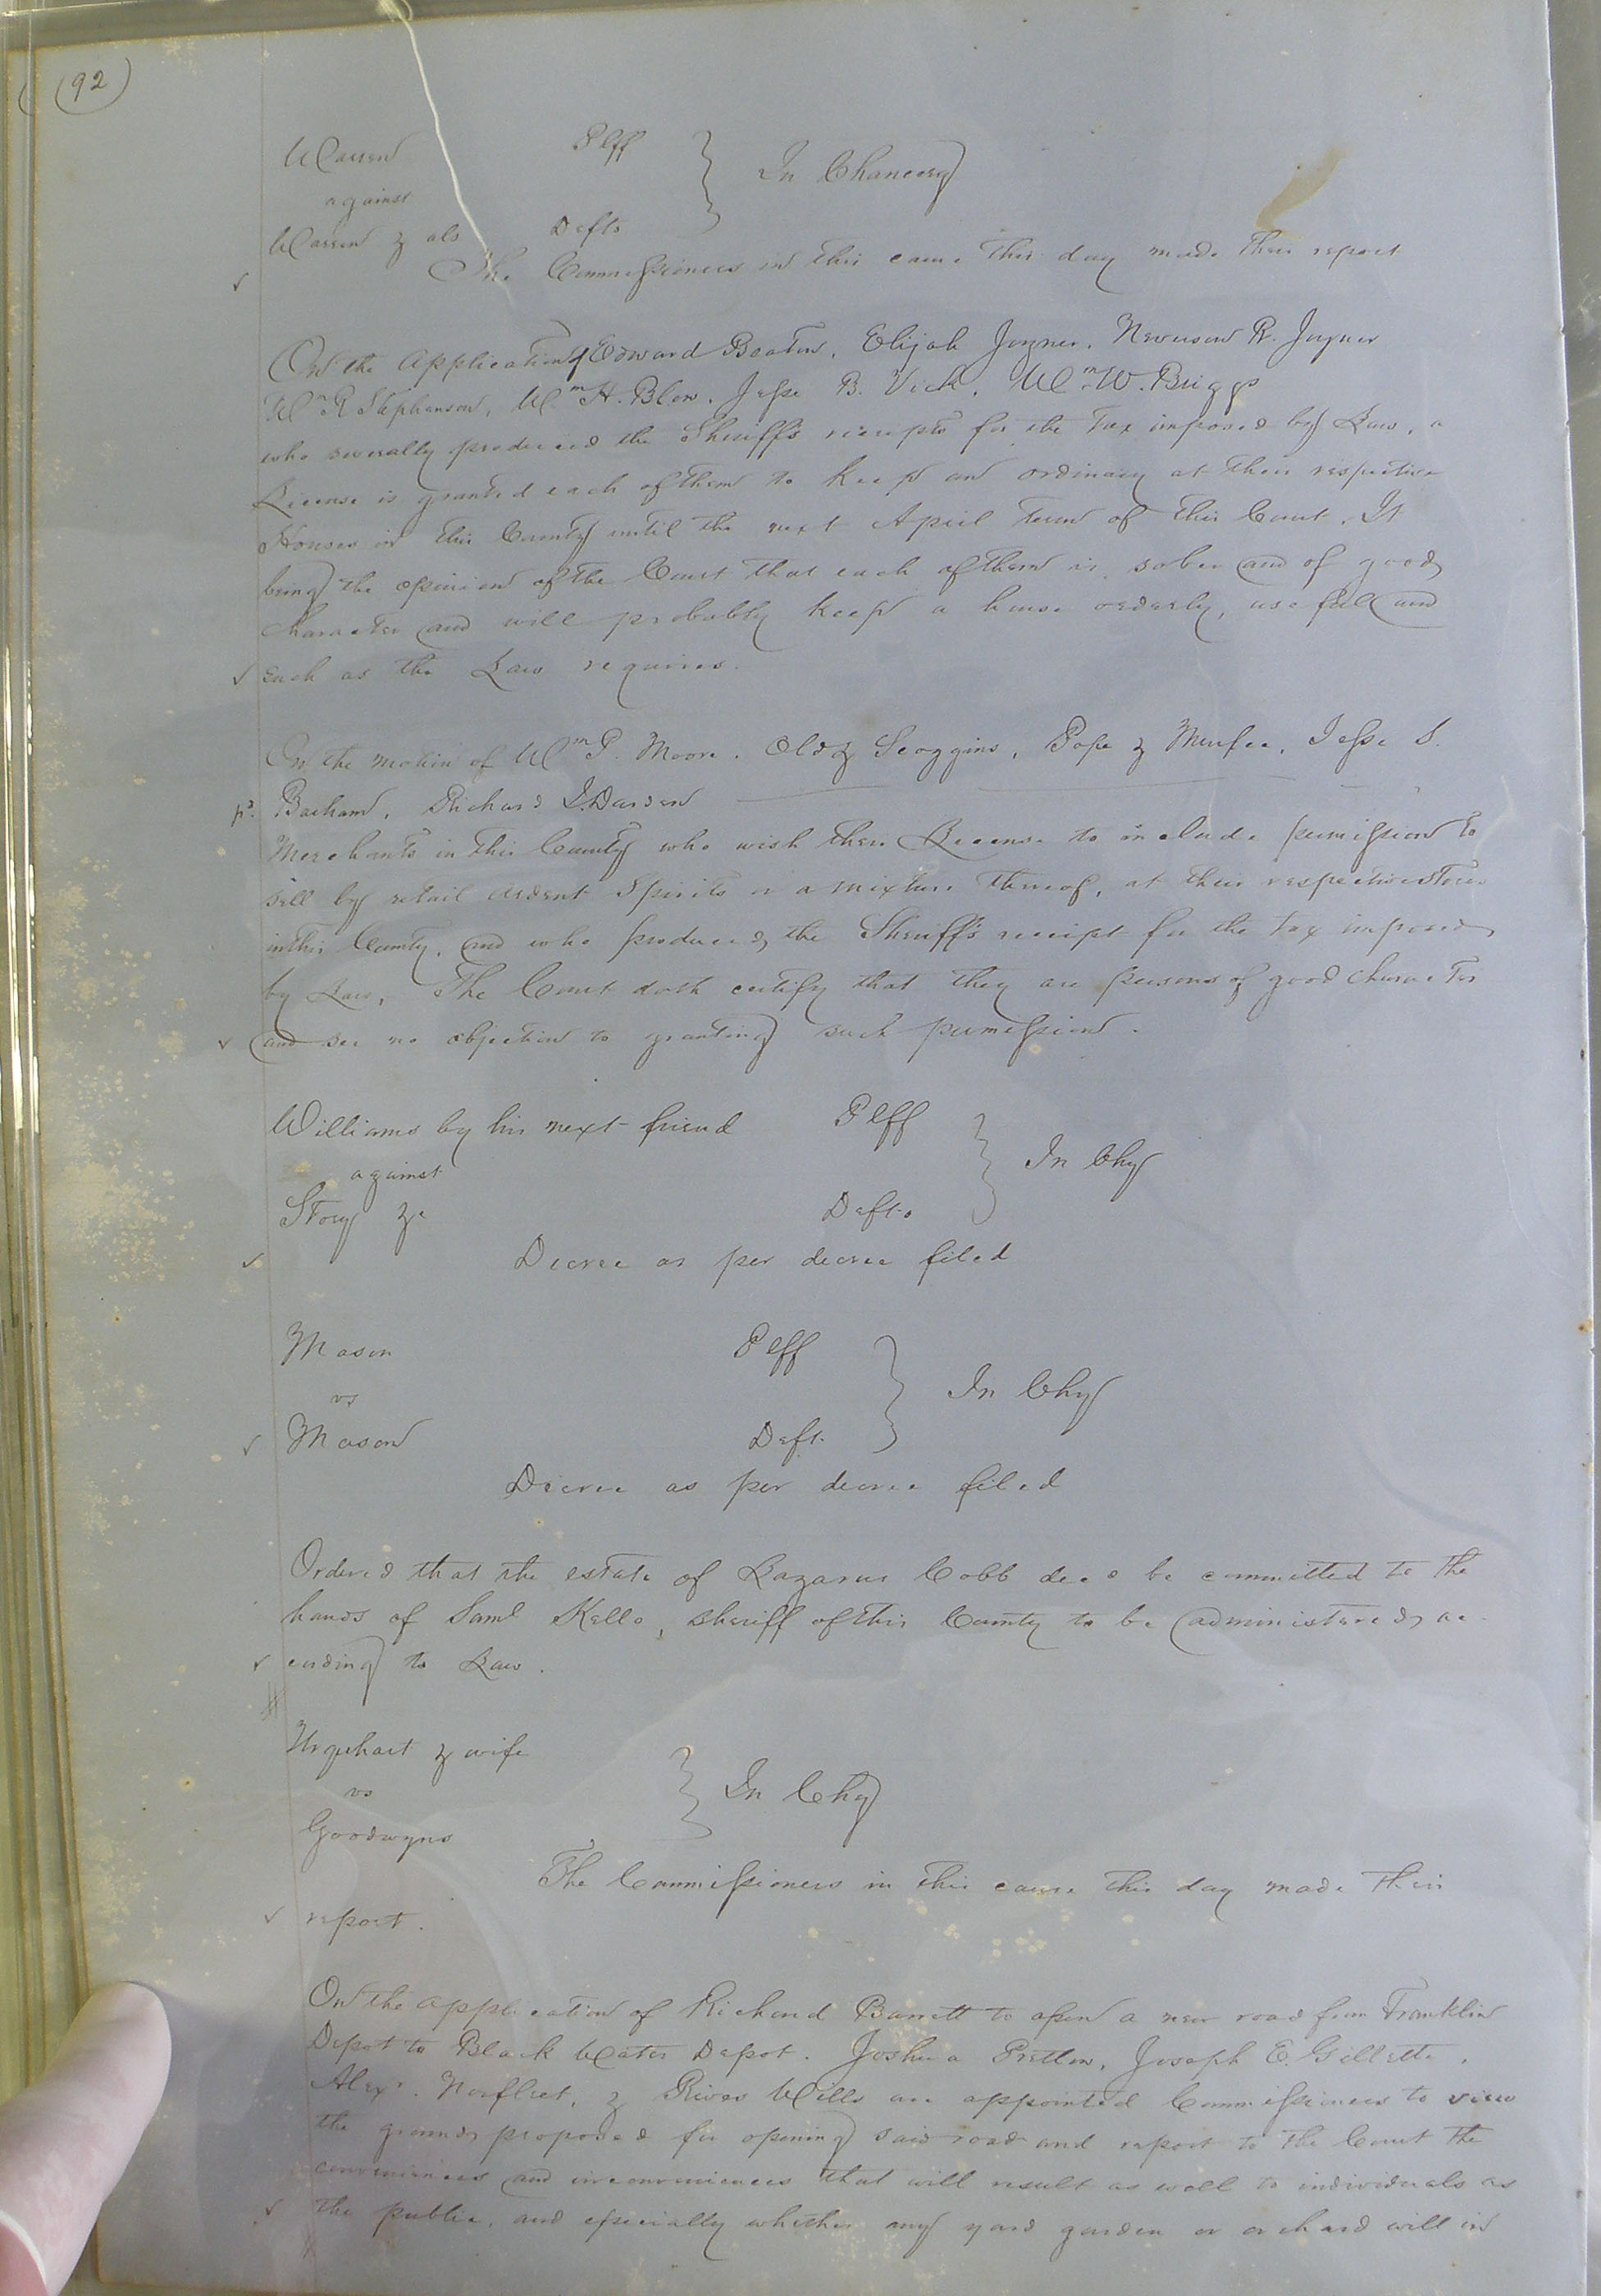 (92)
Warren Plff
against } In Chancery
Warren & als Defts
The Commissioners in this cause this day made their report
On the application of Edward Beaton, Elijah Joyner, Newsom R. Joyner
Wm R Stephenson, Wm H. Blow, Jesse B. Vick, Wm W. Briggs
who severally produced the Sheriff's receipts for the Tax imposed by Law, a
License is granted each of them to keep an ordinary at their respective
Houses in this County until the next April Term of this Court. It
being the opinion of the Court that each of them is sober and of good
character and will probably keep a house orderly, useful and
such as the Law requires.
On the motion of Wm P. Moore, Old & Scoggins, Pope & Murfee, Jesse S.
pd. Barham, Richard J. Darden
Merchants in this County who wish their License to include permission to
sell by retail ardent Spirits or a mixture thereof, at their respective Stores
in this County, and who produced the Sheriff's receipt for the tax imposed
by Law, The Court doth certify that they are persons of good character
and see no objection to granting such permission.
Williams by his next friend Plff
against } In Chy
Story &c Defts
Decree as per decree filed
Mason Plff
vs } In Chy
Mason Deft.
Decree as per decree filed
Ordered that the estate of Lazarus Cobb decd be committed to the
hands of Saml Kello, Sheriff of this County to be administered ac-
cording to Law.
Urquhart & wife
vs } In Chy
Goodwyns
The Commissioners in this cause this day made their
report.
On the application of Richard Barrett to open a new road from Franklin
Depot to Black Water Depot. Joshua Pretlow, Joseph E. Gillette,
Alexr. Norfleet, & Rives Wills are appointed Commissioners to view
the grounds proposed for opening said road and report to the Court the
conveniences and inconveniences that will result as well to individuals as
the public, and especially whether any yard garden or orchard will in